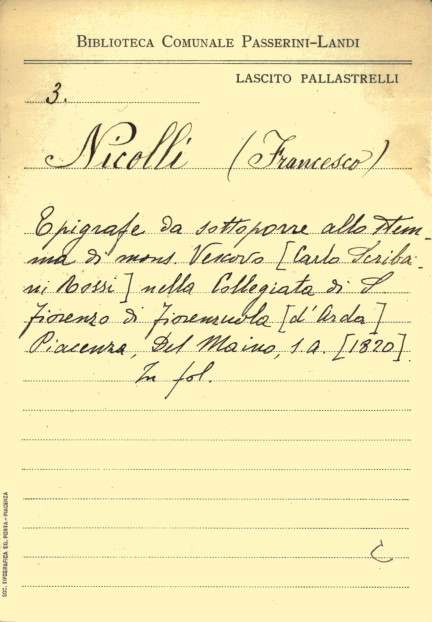 BIBLIOTECA COMUNALE PASSERINI-LANDI
LASCITO PALLASTRELLI
3.
Nicolli (Francesco)
Epigrafe da sottoporre allo stem-
ma di mons. Vescovo [Carlo Scriba-
ni Rossi] nella Collegiata di S
Fiorenzo di Fiorenzuola [d'Arda]
Piacenza, Del Maino, s. a. [1820].
In fol.
SOC. TIPOGRAFICA ED. PORTA - PIACENZA